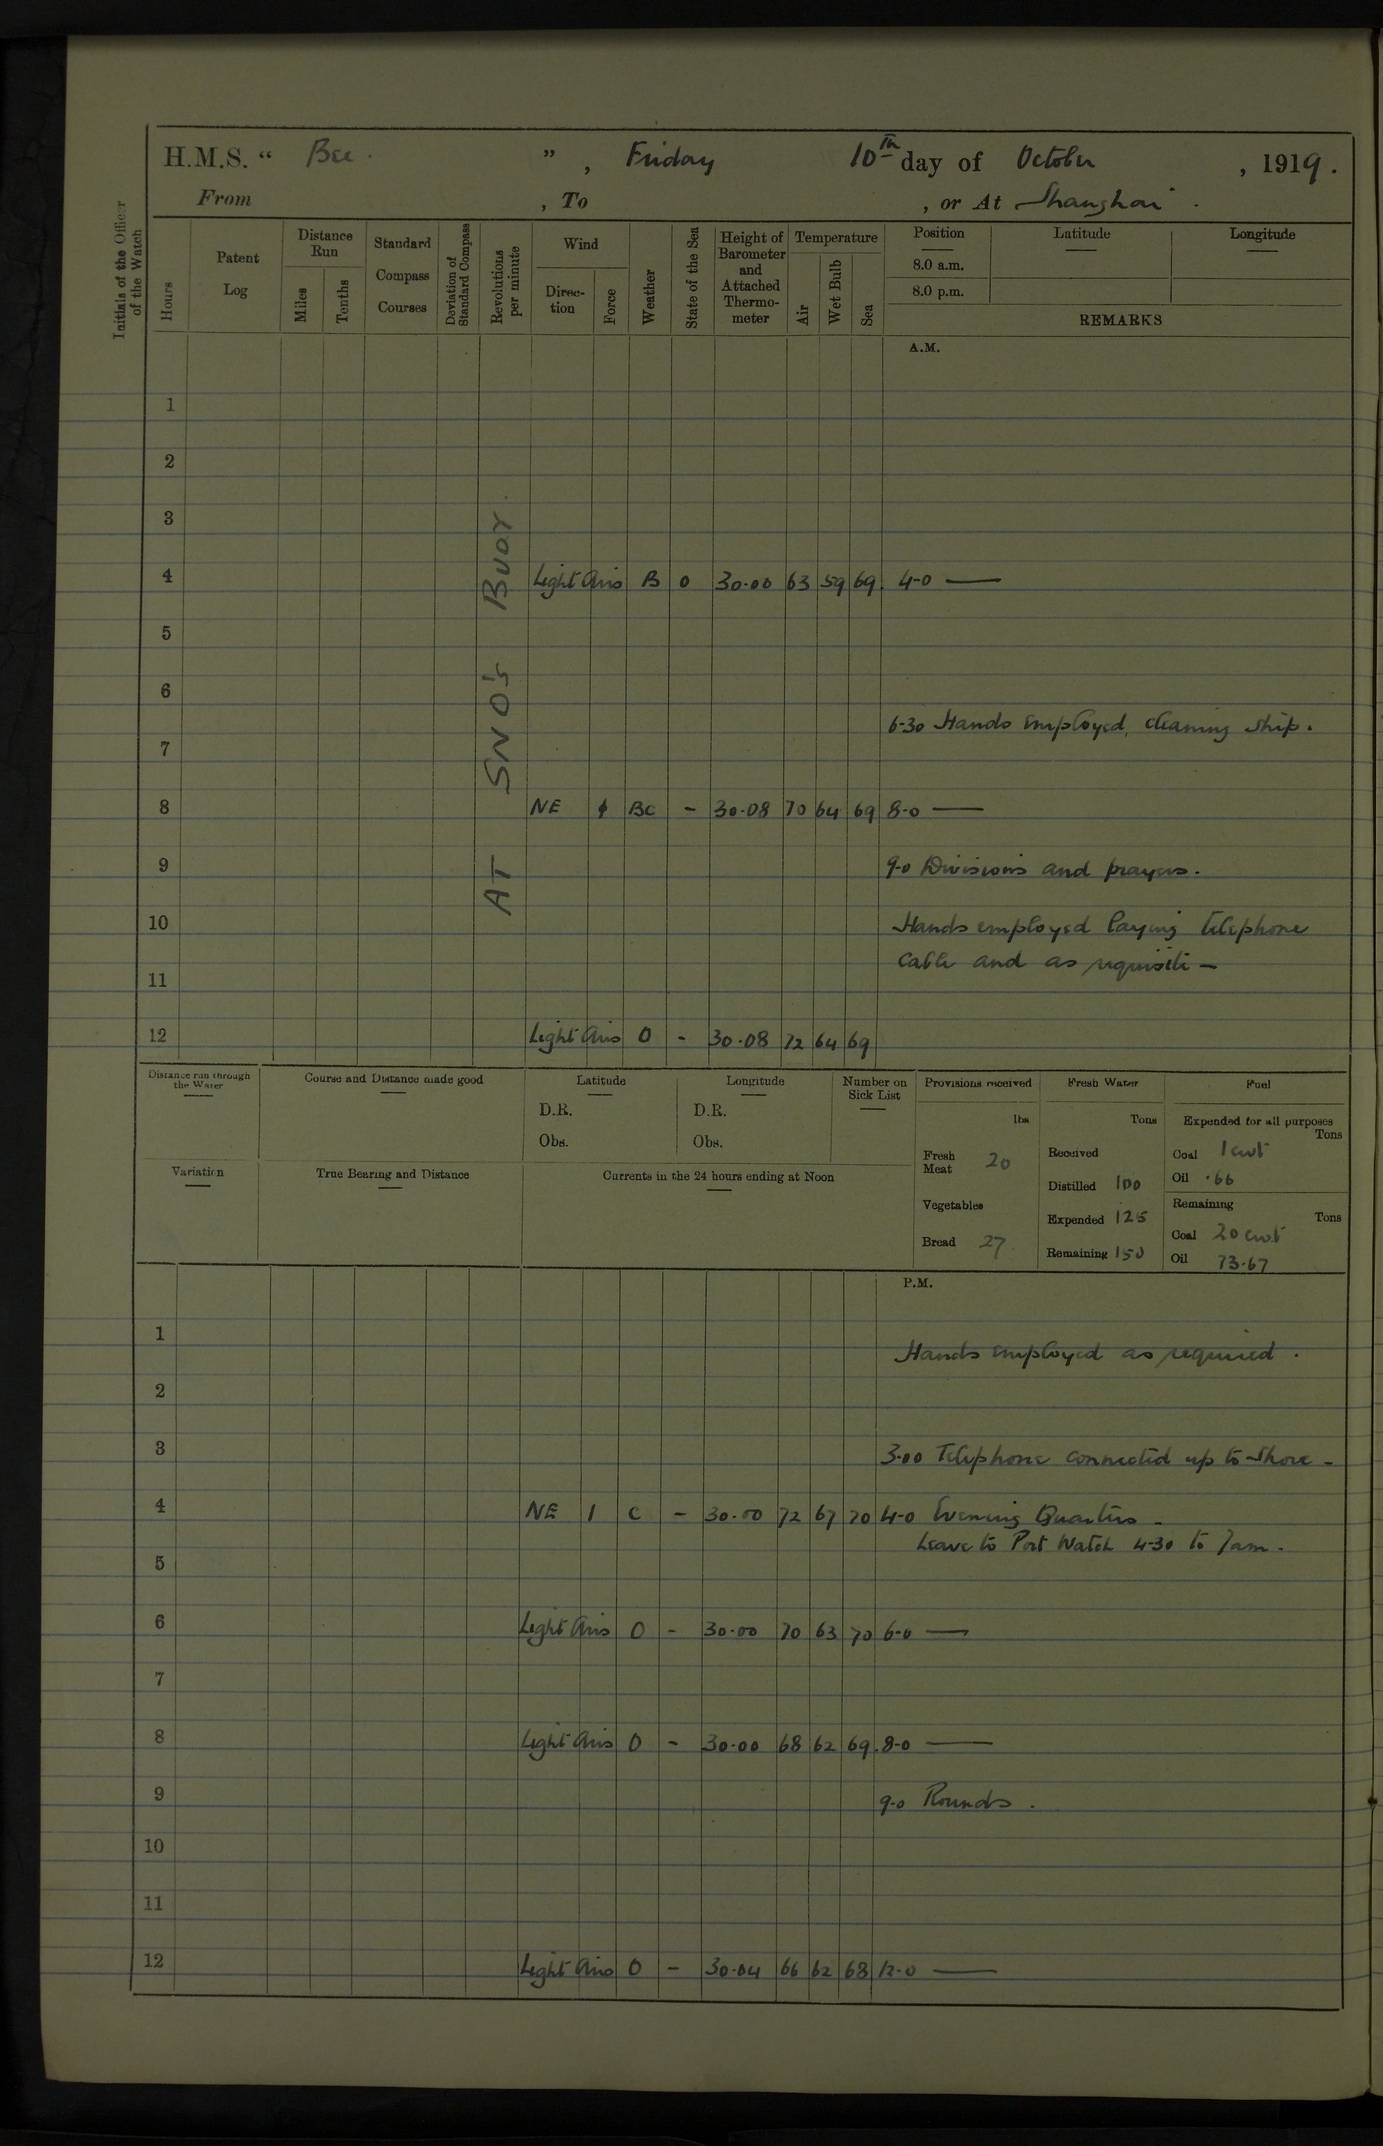 H.M.S. “ Bee. ” , Friday 10th day of October , 1919.
From , To , or At Shanghai.
Initials of the Officer of the Watch
Hours
Patent Log
Distance Run
Miles
Tenths
Standard Compass Courses
Deviation of Standard Compass
Revolutions per minute
Wind
Direc- tion
Force
Weather
State of the Sea
Height of Barometer and Attached Thermo- meter
Temperature
Air
Wet Bulb
Sea
Position Latitude Longitude
8.0 a.m.
8.0 p.m.
REMARKS
A.M.
AT SNO's BUOY.
1
2
3
4 Light Airs B 0 30.00 63 59 69. 4-0 —
5
6
6-30 Hands employed, cleaning ship.
7
8 NE BC - 30.08 70 64 69 8-0 —
9 9-0 Divisions and prayers.
10 Hands employed laying telephone
cable and as requisite -
11
12 Light Airs O - 30.08 72 64 69
Distance run through the Water
Course and Distance made good
Latitude
D.R.
Obs.
Longitude
D.R.
Obs.
Number on Sick List
Variation
True Bearing and Distance
Currents in the 24 hours ending at Noon
Provisions received
lbs
Fresh Meat 20
Vegetables
Bread 27
Fresh Water
Tons
Received
Distilled 100
Expended 125
Remaining 150
Fuel
Expended for all purposes
Tons
Coal 1 cwt
Oil .66
Remaining
Tons
Coal 20 cwt
Oil 73.67
P.M.
1
Hands employed as required.
2
3 3.00 Telephone connected up to Shore -
4 NE 1 C - 30.00 72 67 70 4-0 Evening Quarters -
Leave to Port Watch 4-30 to 7am.
5
6 Light Airs O - 30.00 70 63 70 6-0 —
7
8 Light Airs O - 30.00 68 62 69. 8-0 —
9 9-0 Rounds.
10
11
12 Light Airs O - 30.04 66 62 68 12-0 —